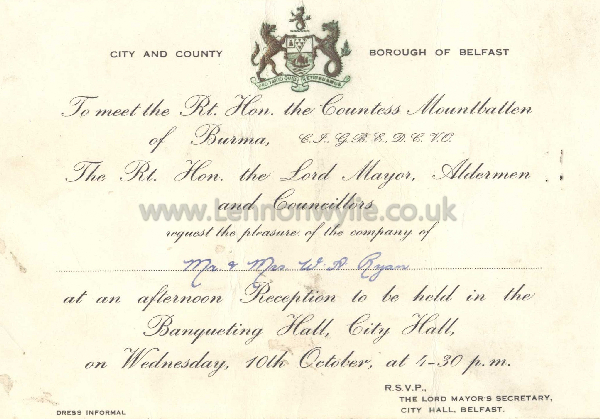 CITY AND COUNTY
BOROUGH OF BELFAST
To meet the Rt. Hon. the Countess Mountbatten
of Burma, C.I., G.B.E., D.C.V.O.
The Rt. Hon. the Lord Mayor, Aldermen
and Councillors
www.Lennonwylie.co.uk
request the pleasure of the company of
Mr & Mrs W A Ryan
at an afternoon Reception to be held in the
Banqueting Hall, City Hall,
on Wednesday, 10th October, at 4-30 p.m.
R.S.V.P.,
THE LORD MAYOR'S SECRETARY,
CITY HALL, BELFAST.
DRESS INFORMAL